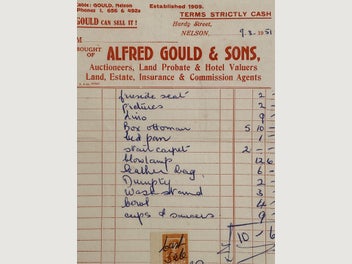 able: GOULD, Nelson
Phones 1, 656 & 492a
GOULD CAN SELL IT!
Established 1909.
TERMS STRICTLY CASH
Hardy Street,
NELSON, 9.3.1951
M
BOUGHT OF
ALFRED GOULD & SONS,
Auctioneers, Land Probate & Hotel Valuers
Land, Estate, Insurance & Commission Agents
fireside seat 2 -
pictures 2 -
Lino 9 -
Box ottoman 5 10 -
bed pan 1 -
stair carpet 2 - -
blowlamp 12 6
leather bag 1 -
Dumpty 2 -
Wash stand 3 -
bowl 4 -
cups & saucers 9 -
10 - 6